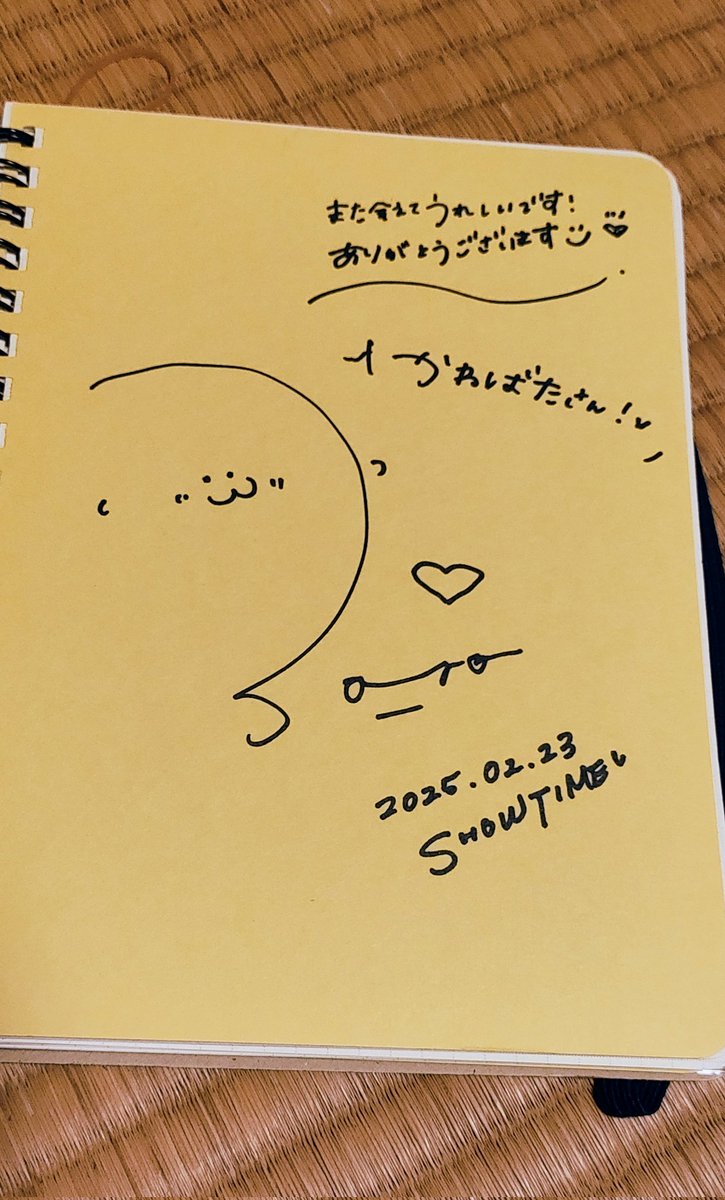 また会えてうれしいです!
ありがとうございます
かわばたさん!
2025.02.23
SHOWTIME